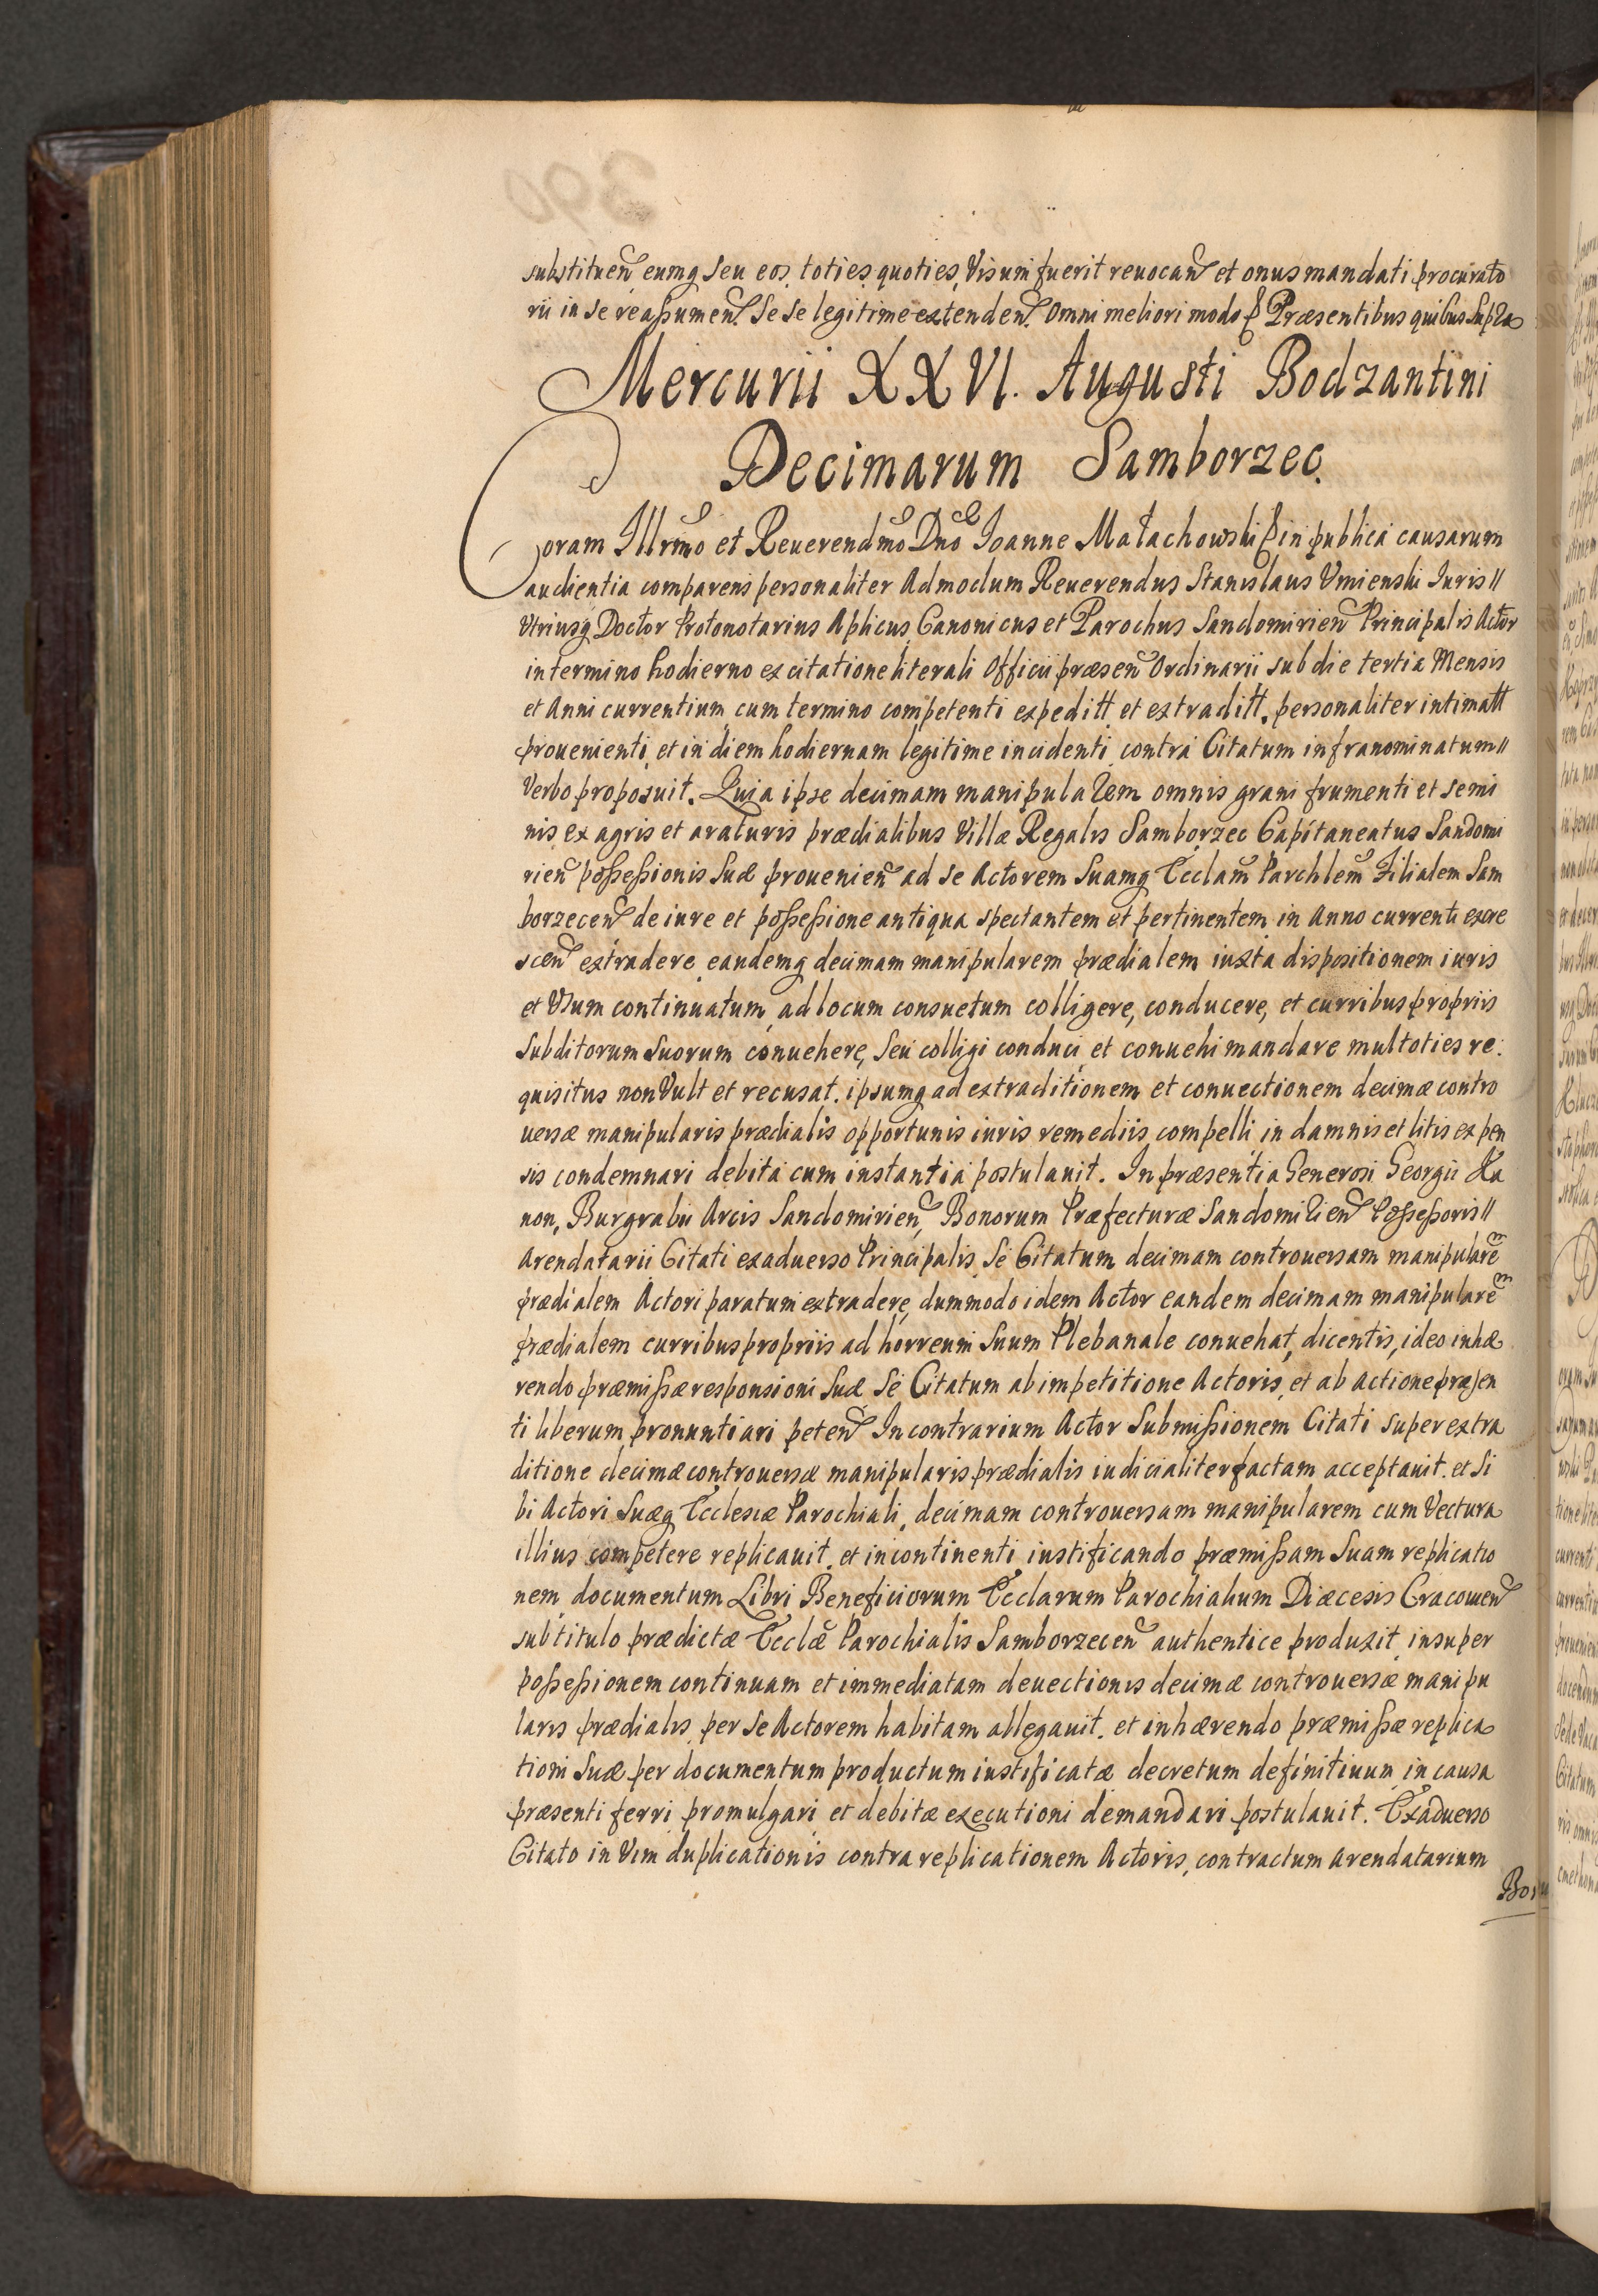 substituen̄ eumq seu eos, toties quoties, Visum fuerit reuocan̄ et onus mandati procurato
rii in se reaſsumen̄. Se se legitime extenden̄. Omni meliori modo ꝑ Præsentibus quibus supra
Mercurii XXVI. Augusti Bodzantini
Decimarum Samborzec.
Coram Illrmo et Reuerendmo Dno Ioanne Małachowski ꝑ in publica causarum
audientia comparens personaliter Admodum Reuerendus Stanislaus Vmienski Iuris //
Vtriusq Doctor Protonotarius Aplicus Canonicus et Parochus Sandomirien̄ Principalis Actor
in termino hodierno ex citatione literali Officii præsen̄ Ordinarii sub die tertia Mensis
et Anni currentium cum termino competenti expeditt et extraditt, personaliter intimatt
prouenienti, et in diem hodiernam legitime incidenti contra Citatum infranominatum //
Verbo proposuit. Quia ipse decimam manipularem omnis grani frumenti et semi
nis ex agris et araturis prædialibus Villæ Regalis Samborzec Capitaneatus Sandomi
rien̄ poſseſsionis suæ prouenien̄ ad se Actorem suamq Ecclam̄ Parchlem̄ Filialem Sam
borzecen̄ de iure et poſseſsione antiqua spectantem et pertinentem in Anno currenti excre
scen̄ extradere, eandemq decimam manipularem prædialem iuxta dispositionem iuris
et Vsum continuatum, ad locum consuetum colligere, conducere, et curribus propriis
subditorum suorum conuehere, seu colligi conduci, et conuehi mandare multoties re:
quisitus non Vult et recusat. ipsumq ad extraditionem et conuectionem decimæ contro
uersæ manipularis prædialis opportunis iuris remediis compelli in damnis et litis expen
sis condemnari debita cum instantia postulauit. In præsentia Generosi Georgii Ka
non, Burgrabii Arcis Sandomirien̄, Bonorum Præfecturæ Sandomirien̄ Poſseſsoris //
Arendatarii Citati exaduerso Principalis, Se Citatum decimam controuersam manipularē
prædialem Actori paratum extradere, dummodo idem Actor eandem decimam manipularem
prædialem curribus propriis ad horreum suum Plebanale conuehat, dicentis, ideo inhæ
rendo præmiſsæ responsioni suæ Se Citatum ab impetitione Actoris, et ab actione præsen
ti liberum pronuntiari peten̄ In contrarium Actor submiſsionem Citati super extra
ditione decimæ controuersæ manipularis prædialis iudicialiter factam acceptauit. et si
bi Actori suæq Ecclesiæ Parochiali, decimam controuersam manipularem cum Vectura
illius competere replicauit, et incontinenti iustificando præmiſsam suam replicatio
nem, documentum Libri Beneficiorum Ecclarum Parochialium Diæcesis Cracouien̄
sub titulo prædictæ Ecclæ Parochialis Samborzecen̄ authentice produxit, insuper
poſseſsionem continuam et immediatam deuectionis decimæ controuersæ manipu
laris prædialis, per se Actorem habitam allegauit. et inhærendo præmiſsæ replica
tioni suæ per documentum productum iustificatæ decretum definitiuum in causa
præsenti ferri promulgari et debitæ executioni demandari postulauit. Exaduerso
Citato in Vim duplicationis contra replicationem Actoris, contractum arendatarium